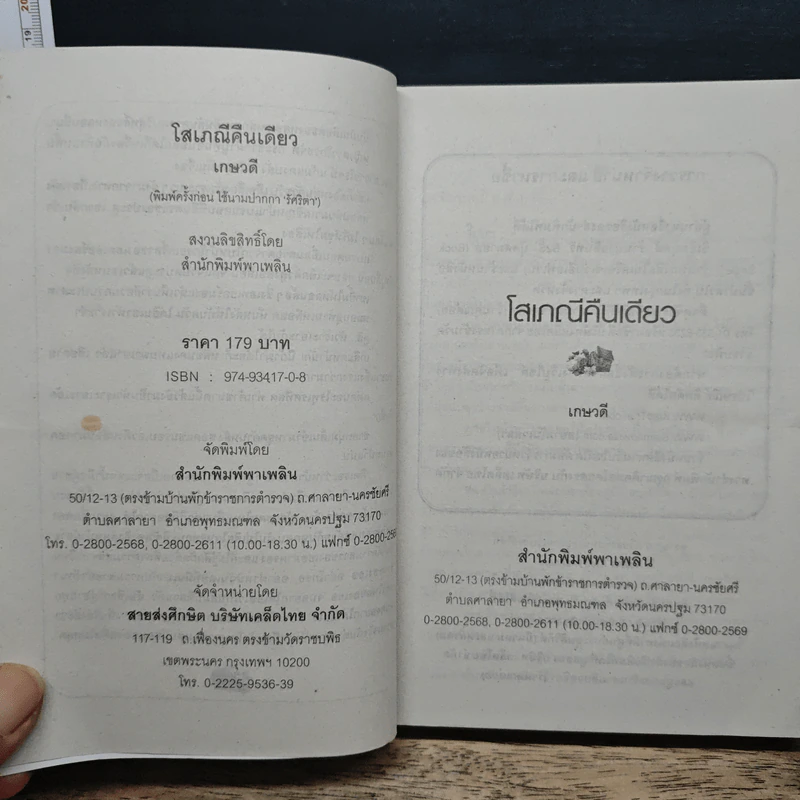 โสเภณีคืนเดียว
เกษวดี
(พิมพ์ครั้งก่อน ใช้นามปากกา 'รัศริตา')
สงวนลิขสิทธิ์โดย
สำนักพิมพ์พาเพลิน
ราคา 179 บาท
ISBN : 974-93417-0-8
จัดพิมพ์โดย
สำนักพิมพ์พาเพลิน
50/12-13 (ตรงข้ามบ้านพักข้าราชการตำรวจ) ถ.ศาลายา-นครชัยศรี
ตำบลศาลายา อำเภอพุทธมณฑล จังหวัดนครปฐม 73170
โทร. 0-2800-2568, 0-2800-2611 (10.00-18.30 น.) แฟกซ์ 0-2800-256
จัดจำหน่ายโดย
สายส่งศึกษิต บริษัทเคล็ดไทย จำกัด
117-119 ถ.เฟื่องนคร ตรงข้ามวัดราชบพิธ
เขตพระนคร กรุงเทพฯ 10200
โทร. 0-2225-9536-39
โสเภณีคืนเดียว
เกษวดี
สำนักพิมพ์พาเพลิน
50/12-13 (ตรงข้ามบ้านพักข้าราชการตำรวจ) ถ.ศาลายา-นครชัยศรี
ตำบลศาลายา อำเภอพุทธมณฑล จังหวัดนครปฐม 73170
0-2800-2568, 0-2800-2611 (10.00-18.30 น.) แฟกซ์ 0-2800-2569
19 20